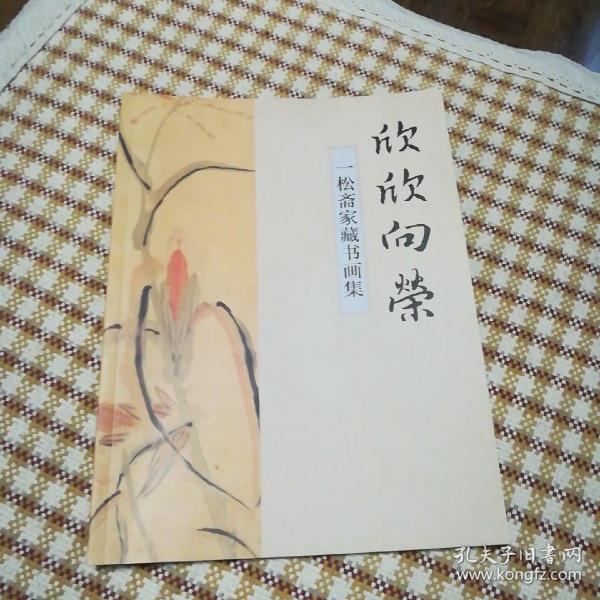 欣欣向榮
一松斋家藏书画集
孔夫子旧書网
www.kongfz.com